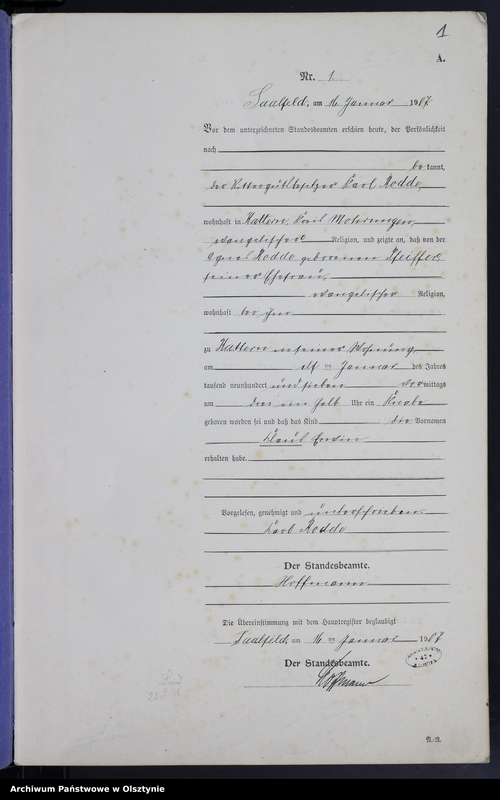 1
A.
Nr. 1.
Saalfeld, am 16 Januar 1907
Vor dem unterzeichneten Standesbeamten erschien heute, der Persönlichkeit
nach
be kannt,
der Rittergutsbesitzer Karl Rodde,
wohnhaft in Kuttern, Kreis Mohrungen,
evangelischer Religion, und zeigte an, daß von der
Agnes Rodde geborenen Pfeiffer,
seiner Ehefrau,
evangelischer Religion,
wohnhaft bei ihm
zu Kuttern in seiner Wohnung
am elf ten Januar des Jahres
tausend neunhundert und sieben vormittags
um drei ein halb Uhr ein Knabe
geboren worden sei und daß das Kind die Vornamen
Erwin
erhalten habe.
Vorgelesen, genehmigt und unterschrieben.
Karl Rodde
Der Standesbeamte.
Hoffmann
Die Übereinstimmung mit dem Hauptregister beglaubigt
Saalfeld, am 16 ten Januar 1907
Der Standesbeamte.
Hoffmann
Archiwum Państwowe w Olsztynie